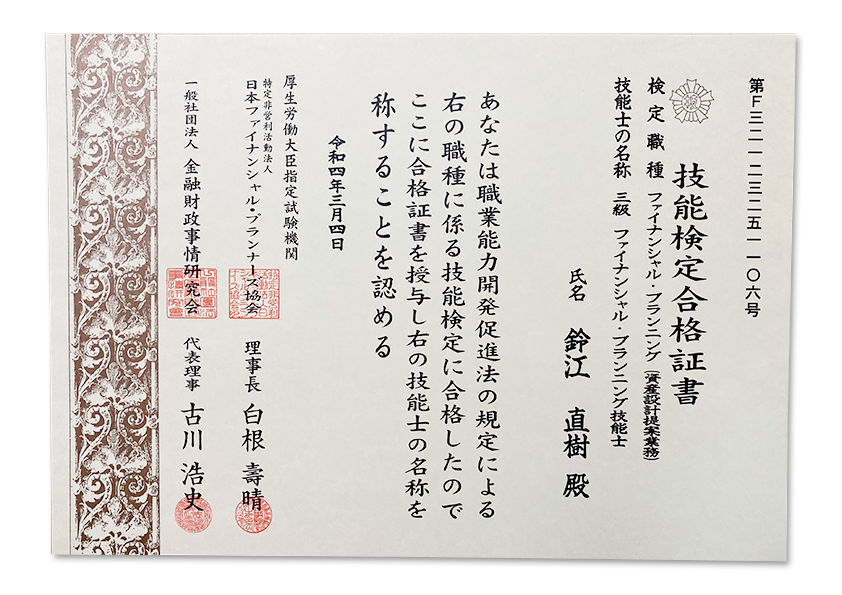 第F三二一二三二五一一〇六号
技能検定合格証書
検定職種 ファイナンシャル・プランニング（資産設計提案業務）
技能士の名称 三級 ファイナンシャル・プランニング技能士
氏名 鈴江 直樹 殿
あなたは職業能力開発促進法の規定による
右の職種に係る技能検定に合格したので
ここに合格証書を授与し右の技能士の名称を
称することを認める
令和四年三月四日
厚生労働大臣指定試験機関
特定非営利活動法人
日本ファイナンシャル・プランナーズ協会 理事長 白根 壽晴
一般社団法人 金融財政事情研究会 代表理事 古川 浩史